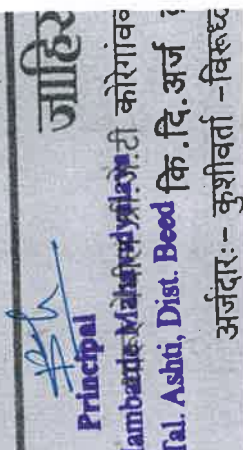 जाहिर
Principal
Mahavidyalaya जे.टी कोरेगांव
Tal. Ashti, Dist. Beed कि.दि.अर्ज
अर्जदार:- कुशीवर्ता -विरूध्द